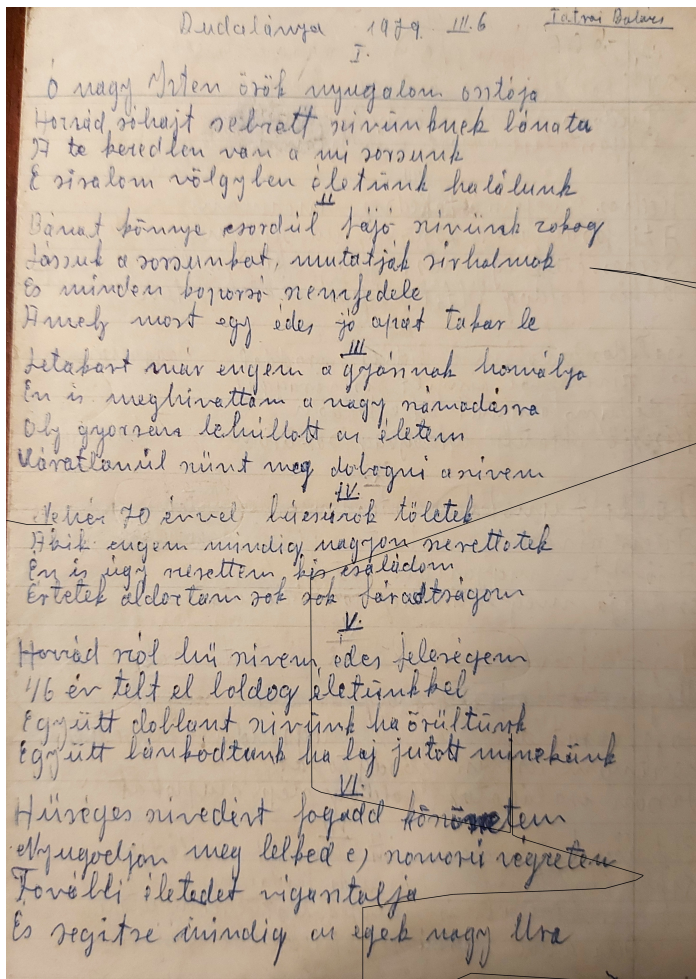 Dudalánya 1979. III.6 Tatrai Balázs
I.
Ó nagy Isten örök nyugalom osztója
Hozzád sóhajt sebzett szivünknek bánata
A te kezedben van a mi sorsunk
E siralom völgyben életünk halálunk
II
Bánat könnye csordúl fájó szivünk zokog
Lássuk a sorsunkat, mutatják sirhalmok
És minden koporsó szemfedele
Amely most egy édes jó apát takar le
III
Letakart már engem a gyásznak homálya
Én is meghivattam a nagy számadásra
Oly gyorsan lehúllott az életem
Váratlanúl szünt meg dobogni a szivem
IV.
Nehéz 70 évvel búcsúzok töletek
Akik engem mindig nagyon szerettetek
Én is úgy szerettem kis családom
Értetek áldoztam sok sok fáradtságom
V.
Hozzád szól hü szivem édes feleségem
46 év telt el boldog életünkkel
Együtt dobbant szivünk ha örültünk
Együtt bánkódtunk ha baj jutott minekünk
VI.
Hüséges szivedért fogadd köszönetem
Nyugodjon meg lelked e, szomorú végzeten
További életedet vigasztalja
És segitse mindig az egek nagy Ura